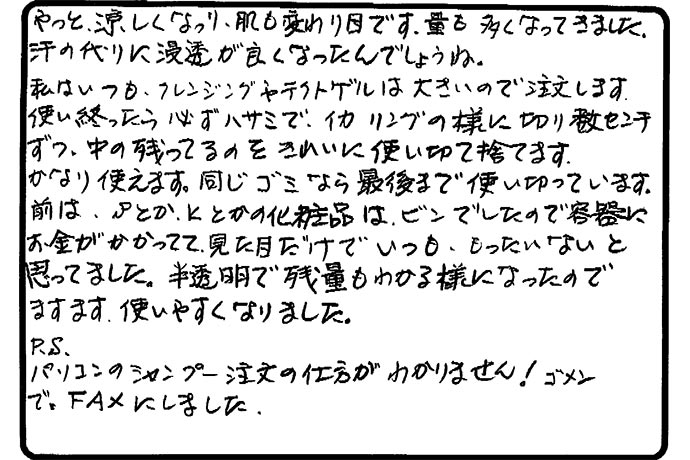 やっと、涼しくなって、肌も変わり目です。量も多くなってきました。
汗の代りに浸透が良くなったんでしょうね。
私はいつも、クレンジングやテクトゲルは大きいので注文します。
使い終ったら必ずハサミで、イカリングの様に切り数センチ
ずつ、中の残ってるのをきれいに使い切て捨てます。
かなり使えます。同じゴミなら最後まで使い切っています。
前は、Pとか、Kとかの化粧品は、ビンでしたので容器に
お金がかかってて、見た目だけでいつも、もったいないと
思ってました。半透明で残量もわかる様になったので
ますます、使いやすくなりました。
P.S.
パソコンのシャンプー注文の仕方がわかりません!ゴメン
で。FAXにしました。